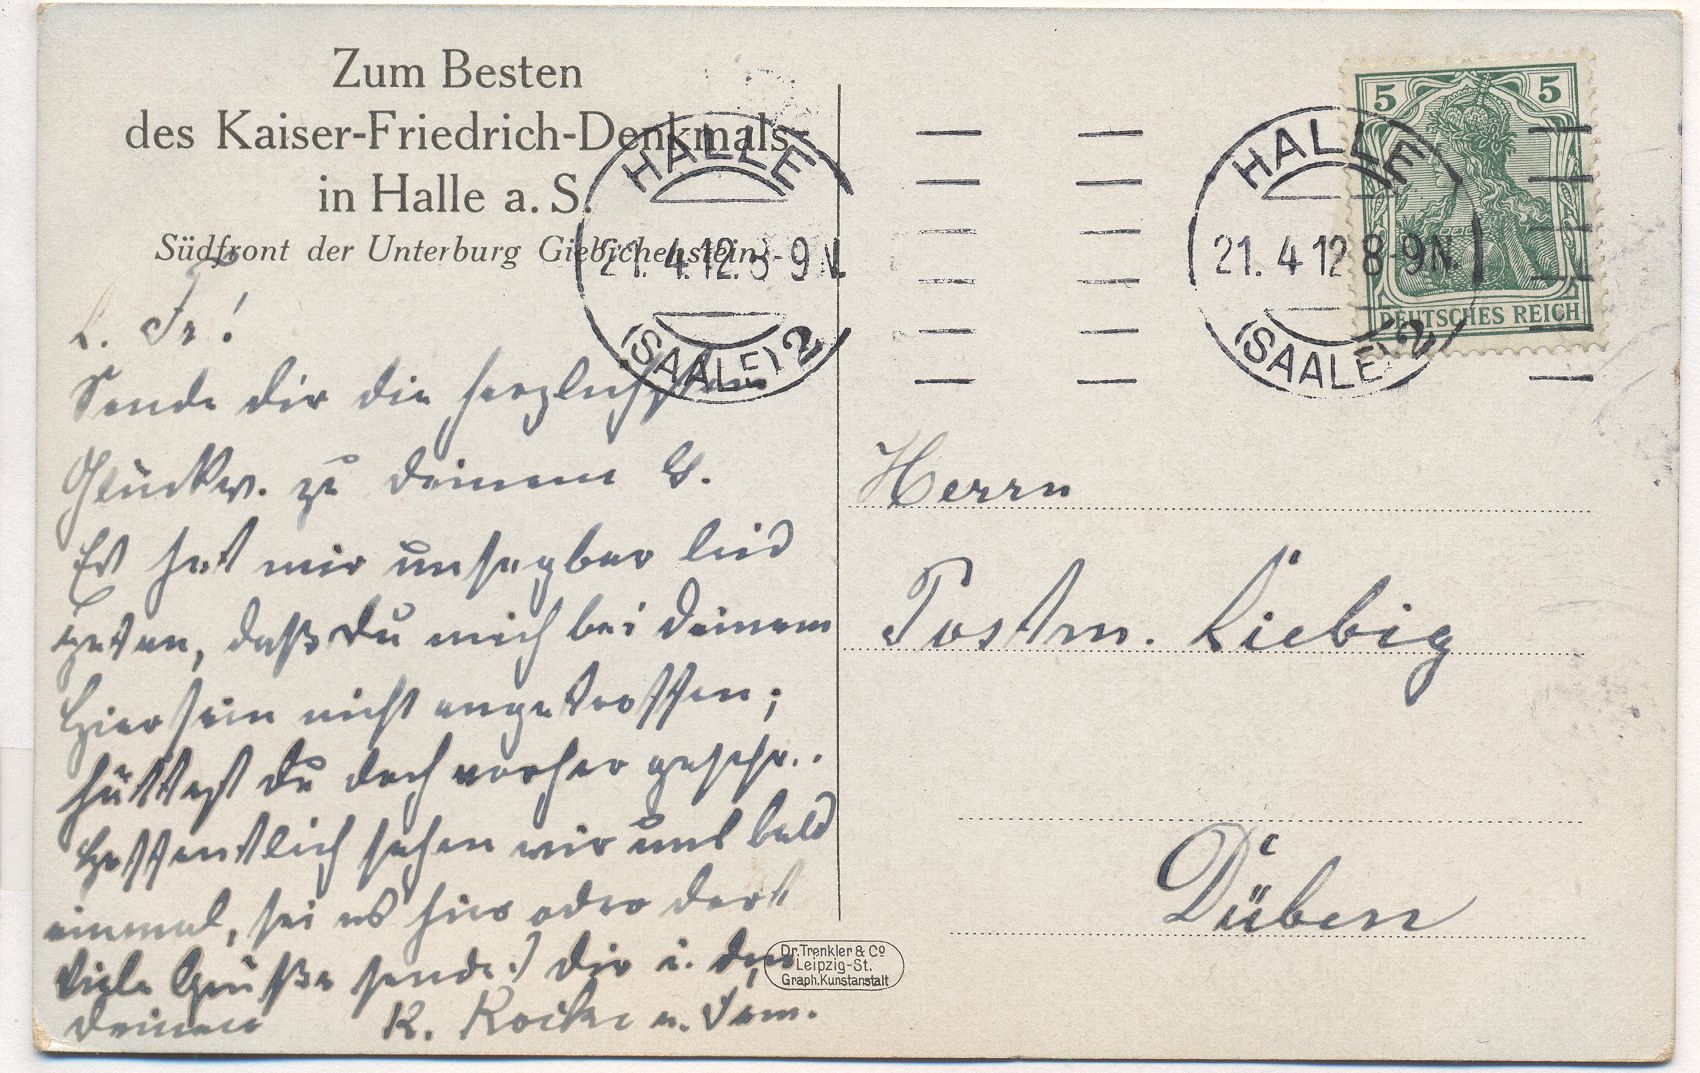 Zum Besten
des Kaiser-Friedrich-Denkmals
in Halle a. S.
Südfront der Unterburg Giebichenstein
L. Fr!
Sende dir die herzlichsten
Glückw. zu deinem G.
Es hat mir unsagbar leid
getan, daß Du mich bei Deinem
Hiersein nicht angetroffen;
hättest Du doch vorher geschr..
Hoffentlich sehen wir uns bald
einmal, sei es hier oder dort
Viele Grüße sendet dir u. den
deinen K. u. Fam.
HALLE
21. 4. 12. 8-9 N.
(SAALE) 2
HALLE
21. 4 12 8-9N.
(SAALE) 2
5 5
DEUTSCHES REICH
Herrn
Postm. Liebig
Düben
Dr. Trenkler & Co
Leipzig-St.
Graph. Kunstanstalt